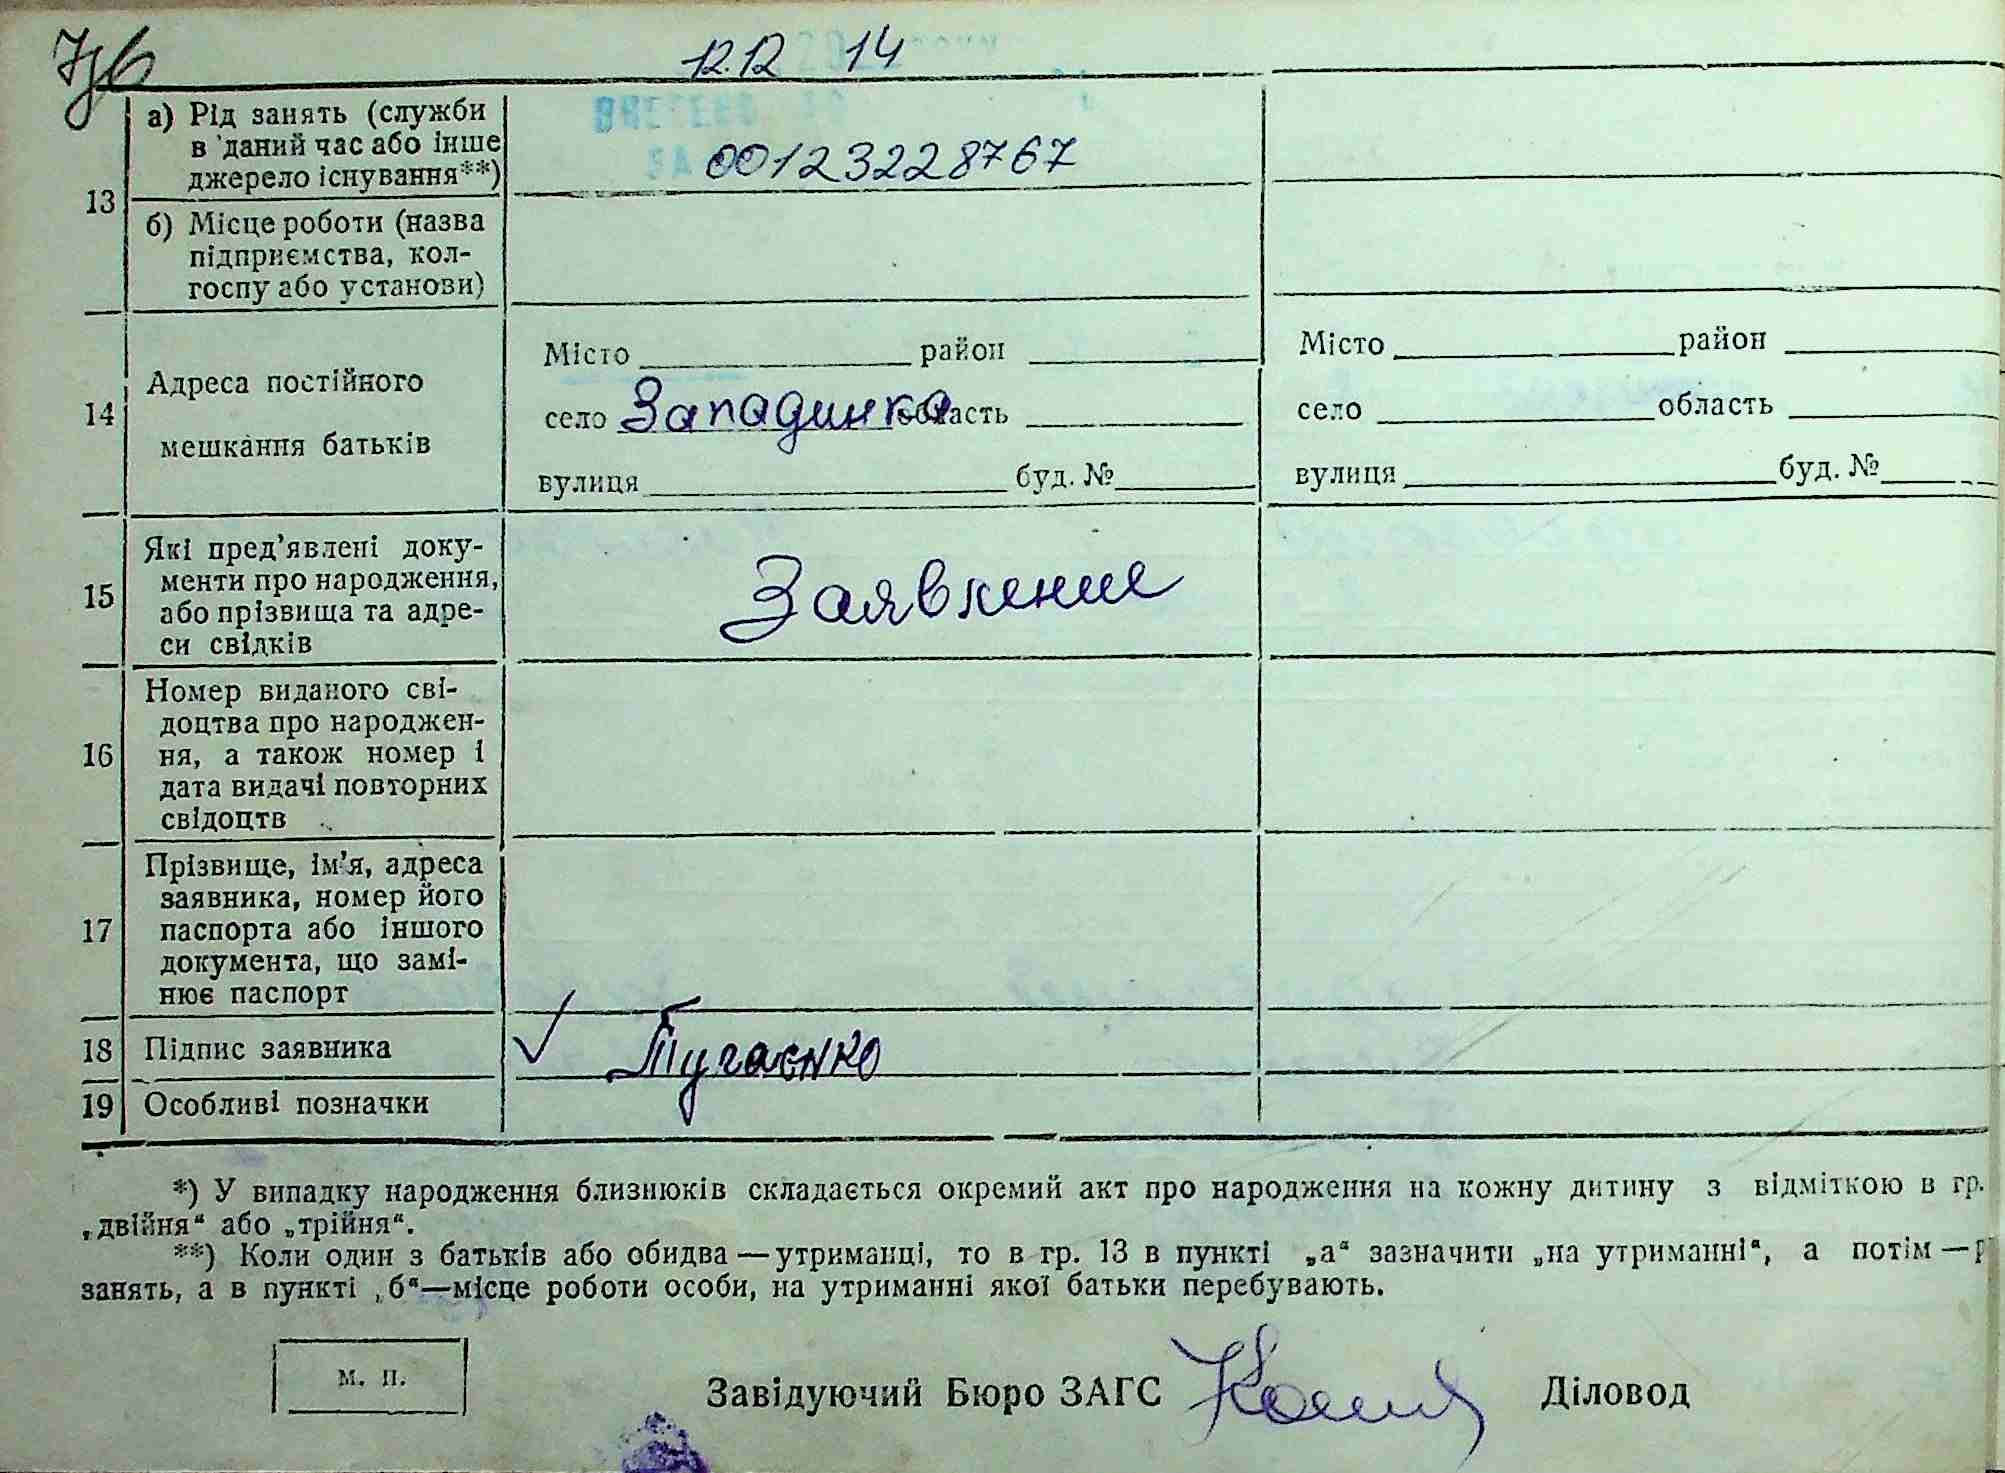 12.12 14
ВНЕСЕНО
00123228767
13 а) Рід занять (служби
в даний час або інше
джерело існування**)
б) Місце роботи (назва
підприємства, кол-
госпу або установи)
14 Адреса постійного
мешкання батьків
Місто район
село Западинка область
вулиця буд. №
Місто район
село область
вулиця буд. №
15 Які пред’явлені доку-
менти про народження,
або прізвища та адре-
си свідків
Заявление
16 Номер виданого сві-
доцтва про народжен-
ня, а також номер і
дата видачі повторних
свідоцтв
17 Прізвище, ім’я, адреса
заявника, номер його
паспорта або іншого
документа, що замі-
нює паспорт
18 Підпис заявника Пугаєнко
19 Особливі позначки
*) У випадку народження близнюків складається окремий акт про народження на кожну дитину з відміткою в гр.
„двійня“ або „трійня“.
**) Коли один з батьків або обидва — утриманці, то в гр. 13 в пункті „а“ зазначити „на утриманні“, а потім —
занять, а в пункті „б“—місце роботи особи, на утриманні якої батьки перебувають.
м. п.
Завідуючий Бюро ЗАГС Діловод